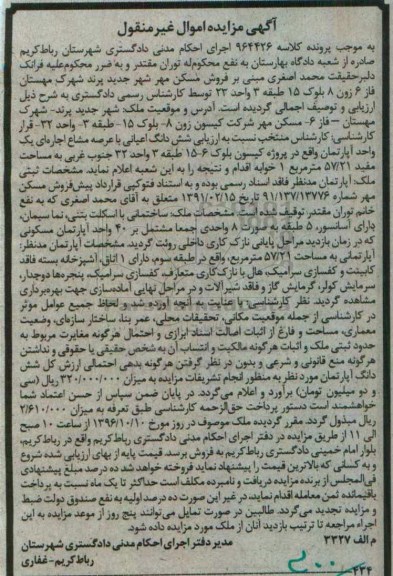 آگهی مزایده اموال غیرمنقول
به موجب پرونده کلاسه ۹۶۴۴۲۶ اجرای احکام مدنی دادگستری شهرستان رباط‌کریم
صادره از شعبه دادگاه بهارستان به نفع محکوم‌له توران مقتدر و به ضرر محکوم‌علیه فرانک
دلبرحقیقت محمد اصغری مبنی بر فروش مسکن مهر شهر جدید پرند شهرک مهستان
فاز ۶ زون ۸ بلوک ۱۵ طبقه ۳ واحد ۲۲ توسط کارشناس رسمی دادگستری به شرح ذیل
ارزیابی و توصیف اجمالی گردیده است. آدرس و موقعیت ملک: شهر جدید پرند- شهرک
مهستان – فاز ۶- مسکن مهر شرکت کیسون زون ۸- بلوک ۱۵- طبقه ۳- واحد ۳۲- قرار
کارشناسی: کارشناس منتخب نسبت به ارزیابی شش دانگ اعیانی با عرصه مشاع اجاره‌ای یک
واحد آپارتمان واقع در پروژه کیسون بلوک ۶-۱۵ طبقه ۳ واحد ۳۲ جنوب غربی به مساحت
مفید ۵۷/۲۱ مترمربع ۱ خوابه اقدام و نتیجه را به این شعبه اعلام نماید. مشخصات ثبتی
ملک: آپارتمان مدنظر فاقد اسناد رسمی بوده و به استناد فتوکپی قرارداد پیش‌فروش مسکن
مهر شماره ۹۱/۱۳۷/۱۳۷۷۶ تاریخ ۱۳۹۱/۰۲/۱۵ متعلق به آقای محمد اصغری که به نفع
خانم توران مقتدر توقیف شده است. مشخصات ملک: ساختمانی با اسکلت بتنی، نما سیمان،
دارای آسانسور، ۵ طبقه به صورت ۸ واحدی جمعا مشتمل بر ۴۰ واحد آپارتمان مسکونی
که در زمان بازدید مراحل پایانی نازک کاری داخلی روئت گردید. مشخصات آپارتمان مدنظر:
آپارتمانی به مساحت ۵۷/۲۱ مترمربع، واقع در طبقه سوم، دارای ۱ اتاق، آشپزخانه بسته فاقد
کابینت و کفسازی سرامیک، هال با نازک‌کاری متعارف، کفسازی سرامیک، پنجره‌ها دوجدار،
سرمایش کولر، گرمایش گاز و فاقد شیرآلات و در مراحل نهایی آماده‌سازی جهت بهره‌برداری
مشاهده گردید. نظر کارشناسی: با عنایت به آنچه آورده شد و لحاظ جمیع عوامل موثر
در کارشناسی از جمله موقعیت مکانی، تحقیقات محلی، عمر بنا، ساختار سازه‌ای، وضعیت
معماری، مساحت و فارغ از اثبات اصالت اسناد ابرازی و احتمال هرگونه مغایرت مربوط به
حدود ثبتی ملک و اثبات هرگونه مالکیت و انتساب آن به شخص حقیقی یا حقوقی و نداشتن
هرگونه منع قانونی و شرعی و بدون در نظر گرفتن هرگونه بدهی احتمالی ارزش کل شش
دانگ آپارتمان مورد نظر به منظور انجام تشریفات مزایده به میزان ۳۲۰/۰۰۰/۰۰۰ ریال (سی
و دو میلیون تومان) برآورد و اعلام می‌گردد. در پایان ضمن سپاس از حسن اعتماد شما
خواهشمند است دستور پرداخت حق‌الزحمه کارشناسی طبق تعرفه به میزان ۲/۶۱۰/۰۰۰
ریال مبذول گردد. مقرر گردیده ملک موصوف در روز مورخ ۱۳۹۶/۱۰/۱۰ از ساعت ۱۰ صبح
الی ۱۱ از طریق مزایده در دفتر اجرای احکام مدنی دادگستری رباط‌کریم واقع در رباط‌کریم،
بلوار امام خمینی دادگستری رباط‌کریم به فروش برسد. قیمت پایه از بهای ارزیابی شده شروع
و به کسانی که بالاترین قیمت را پیشنهاد نماید فروخته خواهد شد ده درصد مبلغ پیشنهادی
فی‌المجلس از برنده مزایده دریافت و نامبرده مکلف است حداکثر تا یک ماه نسبت به پرداخت
باقیمانده ثمن معامله اقدام نماید، در غیر این صورت ده درصد اولیه به نفع صندوق دولت ضبط
و مزایده تجدید می‌گردد. طالبین در صورت تمایل می‌توانند پنج روز از موعد مزایده به این
اجراء مراجعه تا ترتیب بازدید آنان از ملک مورد مزایده داده شود.
م الف ۳۳۲۷ مدیر دفتر اجرای احکام مدنی دادگستری شهرستان
رباط‌کریم- غفاری